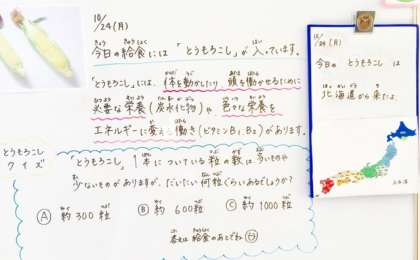 10/24(月)
今日の給食には「とうもろこし」が入っています。
「とうもろこし」には、体を動かしたり 頭を働かせるために
必要な栄養(炭水化物)や、色々な栄養を
エネルギーに変える働き(ビタミンB1、B2)があります。
とうもろこし
クイズ
「とうもろこし」1本についている粒の数は多いものや
少ないものがありますが、だいたい何粒くらいあるでしょうか?
Ⓐ 約300粒 Ⓑ 約600粒 Ⓒ 約1000粒
答えは給食のあとでね
10/24(月)
今日の とうもろこし は
北海道から来たよ